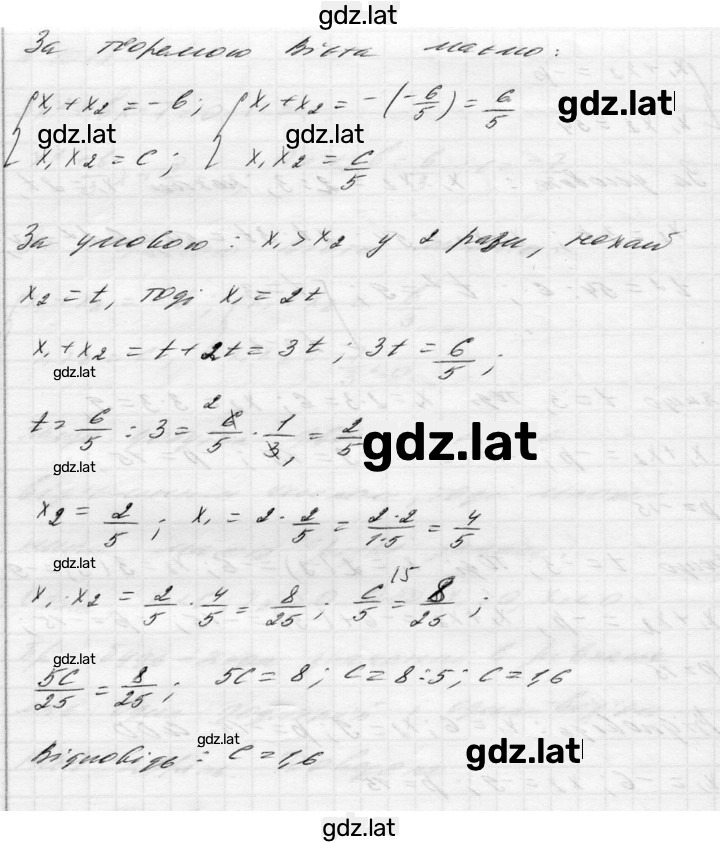 gdz.lat
За теоремою Вієта маємо:
{ x₁ + x₂ = -b; { x₁ + x₂ = -(-6/5) = 6/5
gdz.lat
gdz.lat gdz.lat
x₁ x₂ = c; x₁ x₂ = c/5
За умовою: x₁ > x₂ у 2 рази, нехай
x₂ = t, тоді x₁ = 2t
x₁ + x₂ = t + 2t = 3t; 3t = 6/5;
gdz.lat
t = 6/5 : 3 = 6/5 · 1/3 = 2/5
gdz.lat
gdz.lat
x₂ = 2/5; x₁ = 2 · 2/5 = 2·2/1·5 = 4/5
gdz.lat
x₁ · x₂ = 2/5 · 4/5 = 8/25; c/5 = 8/25;
gdz.lat
5c/25 = 8/25; 5c = 8; c = 8:5; c = 1,6
gdz.lat
Відповідь: c = 1,6
gdz.lat
gdz.lat